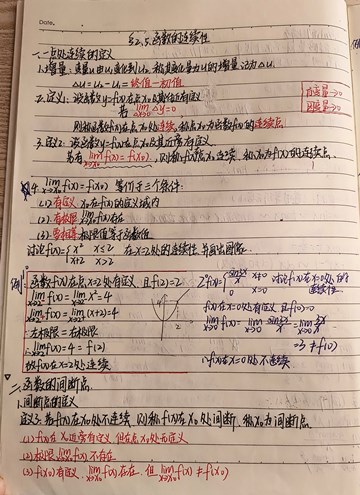 Date.
§2.5. 函数的连续性
一. 一点处连续的定义
1. 增量: 变量u由u₁变化到u₂, 称其变化量为u的增量 记为△u.
△u = u₂ - u₁ = 终值 - 初值
2. 定义₁: 设函数y=f(x)在点x₀及其近旁有定义
若 lim△x→0 △y=0
自变量→0
因变量→0
则称函数f(x)在点x₀处连续, 称点x₀为函数f(x)的连续点
3. 定义₂: 设函数y=f(x)在点x₀及其近旁有定义.
若有 limx→x₀ f(x)=f(x₀), 则称f(x)在x₀连续, 称x₀为f(x)的连续点.
4. limx→x₀ f(x)=f(x₀) 等价于三个条件:
(1). 有定义 x₀在f(x)的定义域内
(2). 有极限 limx→x₀ f(x)存在
(3). 要相等 极限值等于函数值
讨论f(x)={x² x≤2 在x=2处的连续性 并画出图像
例: 函数f(x)在点x=2处有定义 且f(2)=2
lim f(x)=lim x²=4
lim f(x)=lim (x+2)=4
左极限=右极限
lim f(x)=4=f(2)
故f(x)在x=2处连续
2° f(x)={ x≠0 讨论f(x)在x=0处的连续性
0 x=0
f(x)在x=0处有定义 且f(0)=0
limx→0 f(x)=
=3≠f(0)
∴f(x)在x=0处不连续
二. 函数的间断点
1. 间断点的定义
定义3. 若f(x)在x₀处不连续 则称f(x)在x₀处间断, 称x₀为间断点
(1) f(x)在x₀近旁有定义 但在点x₀处无定义
(2) 极限limx→x₀ f(x)不存在
(3) f(x₀)有定义, limx→x₀ f(x)存在, 但 limx→x₀ f(x)≠f(x₀)